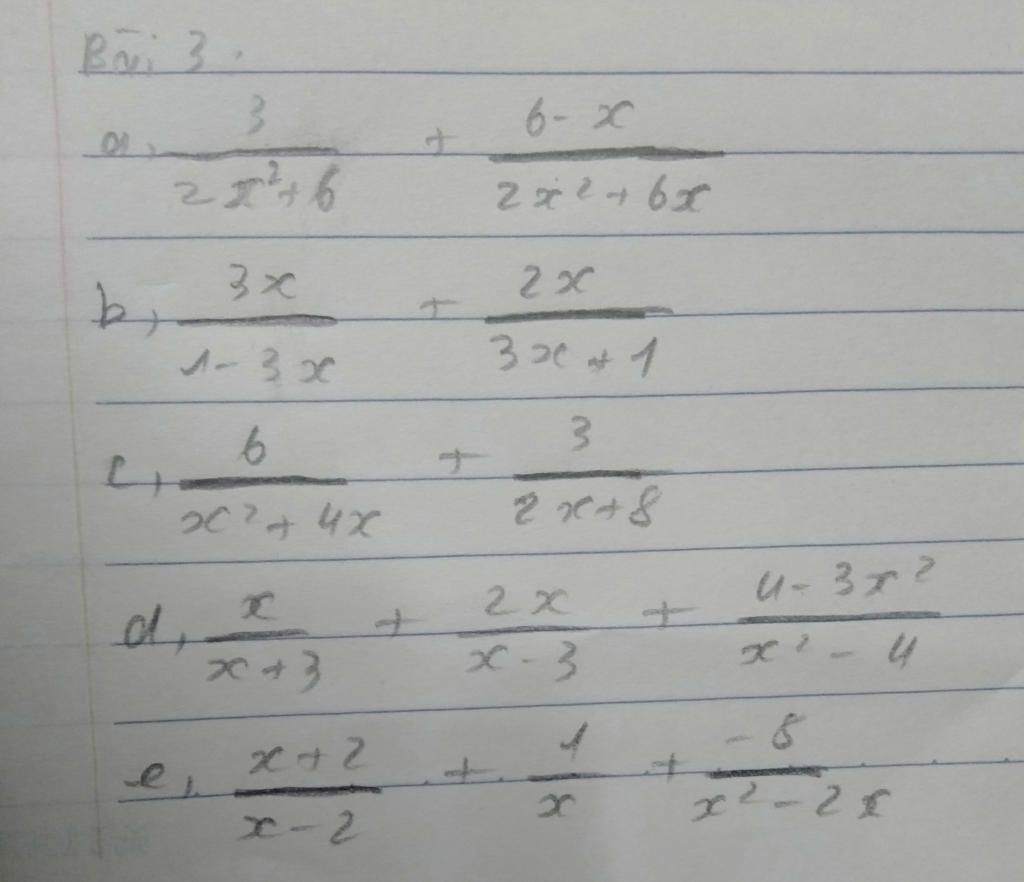 Bài 3.
a, \frac{3}{2x^2+6} + \frac{6-x}{2x^2+6x}
b, \frac{3x}{1-3x} + \frac{2x}{3x+1}
c, \frac{6}{x^2+4x} + \frac{3}{2x+8}
d, \frac{x}{x+3} + \frac{2x}{x-3} + \frac{4-3x^2}{x^2-4}
e, \frac{x+2}{x-2} + \frac{1}{x} + \frac{-8}{x^2-2x}